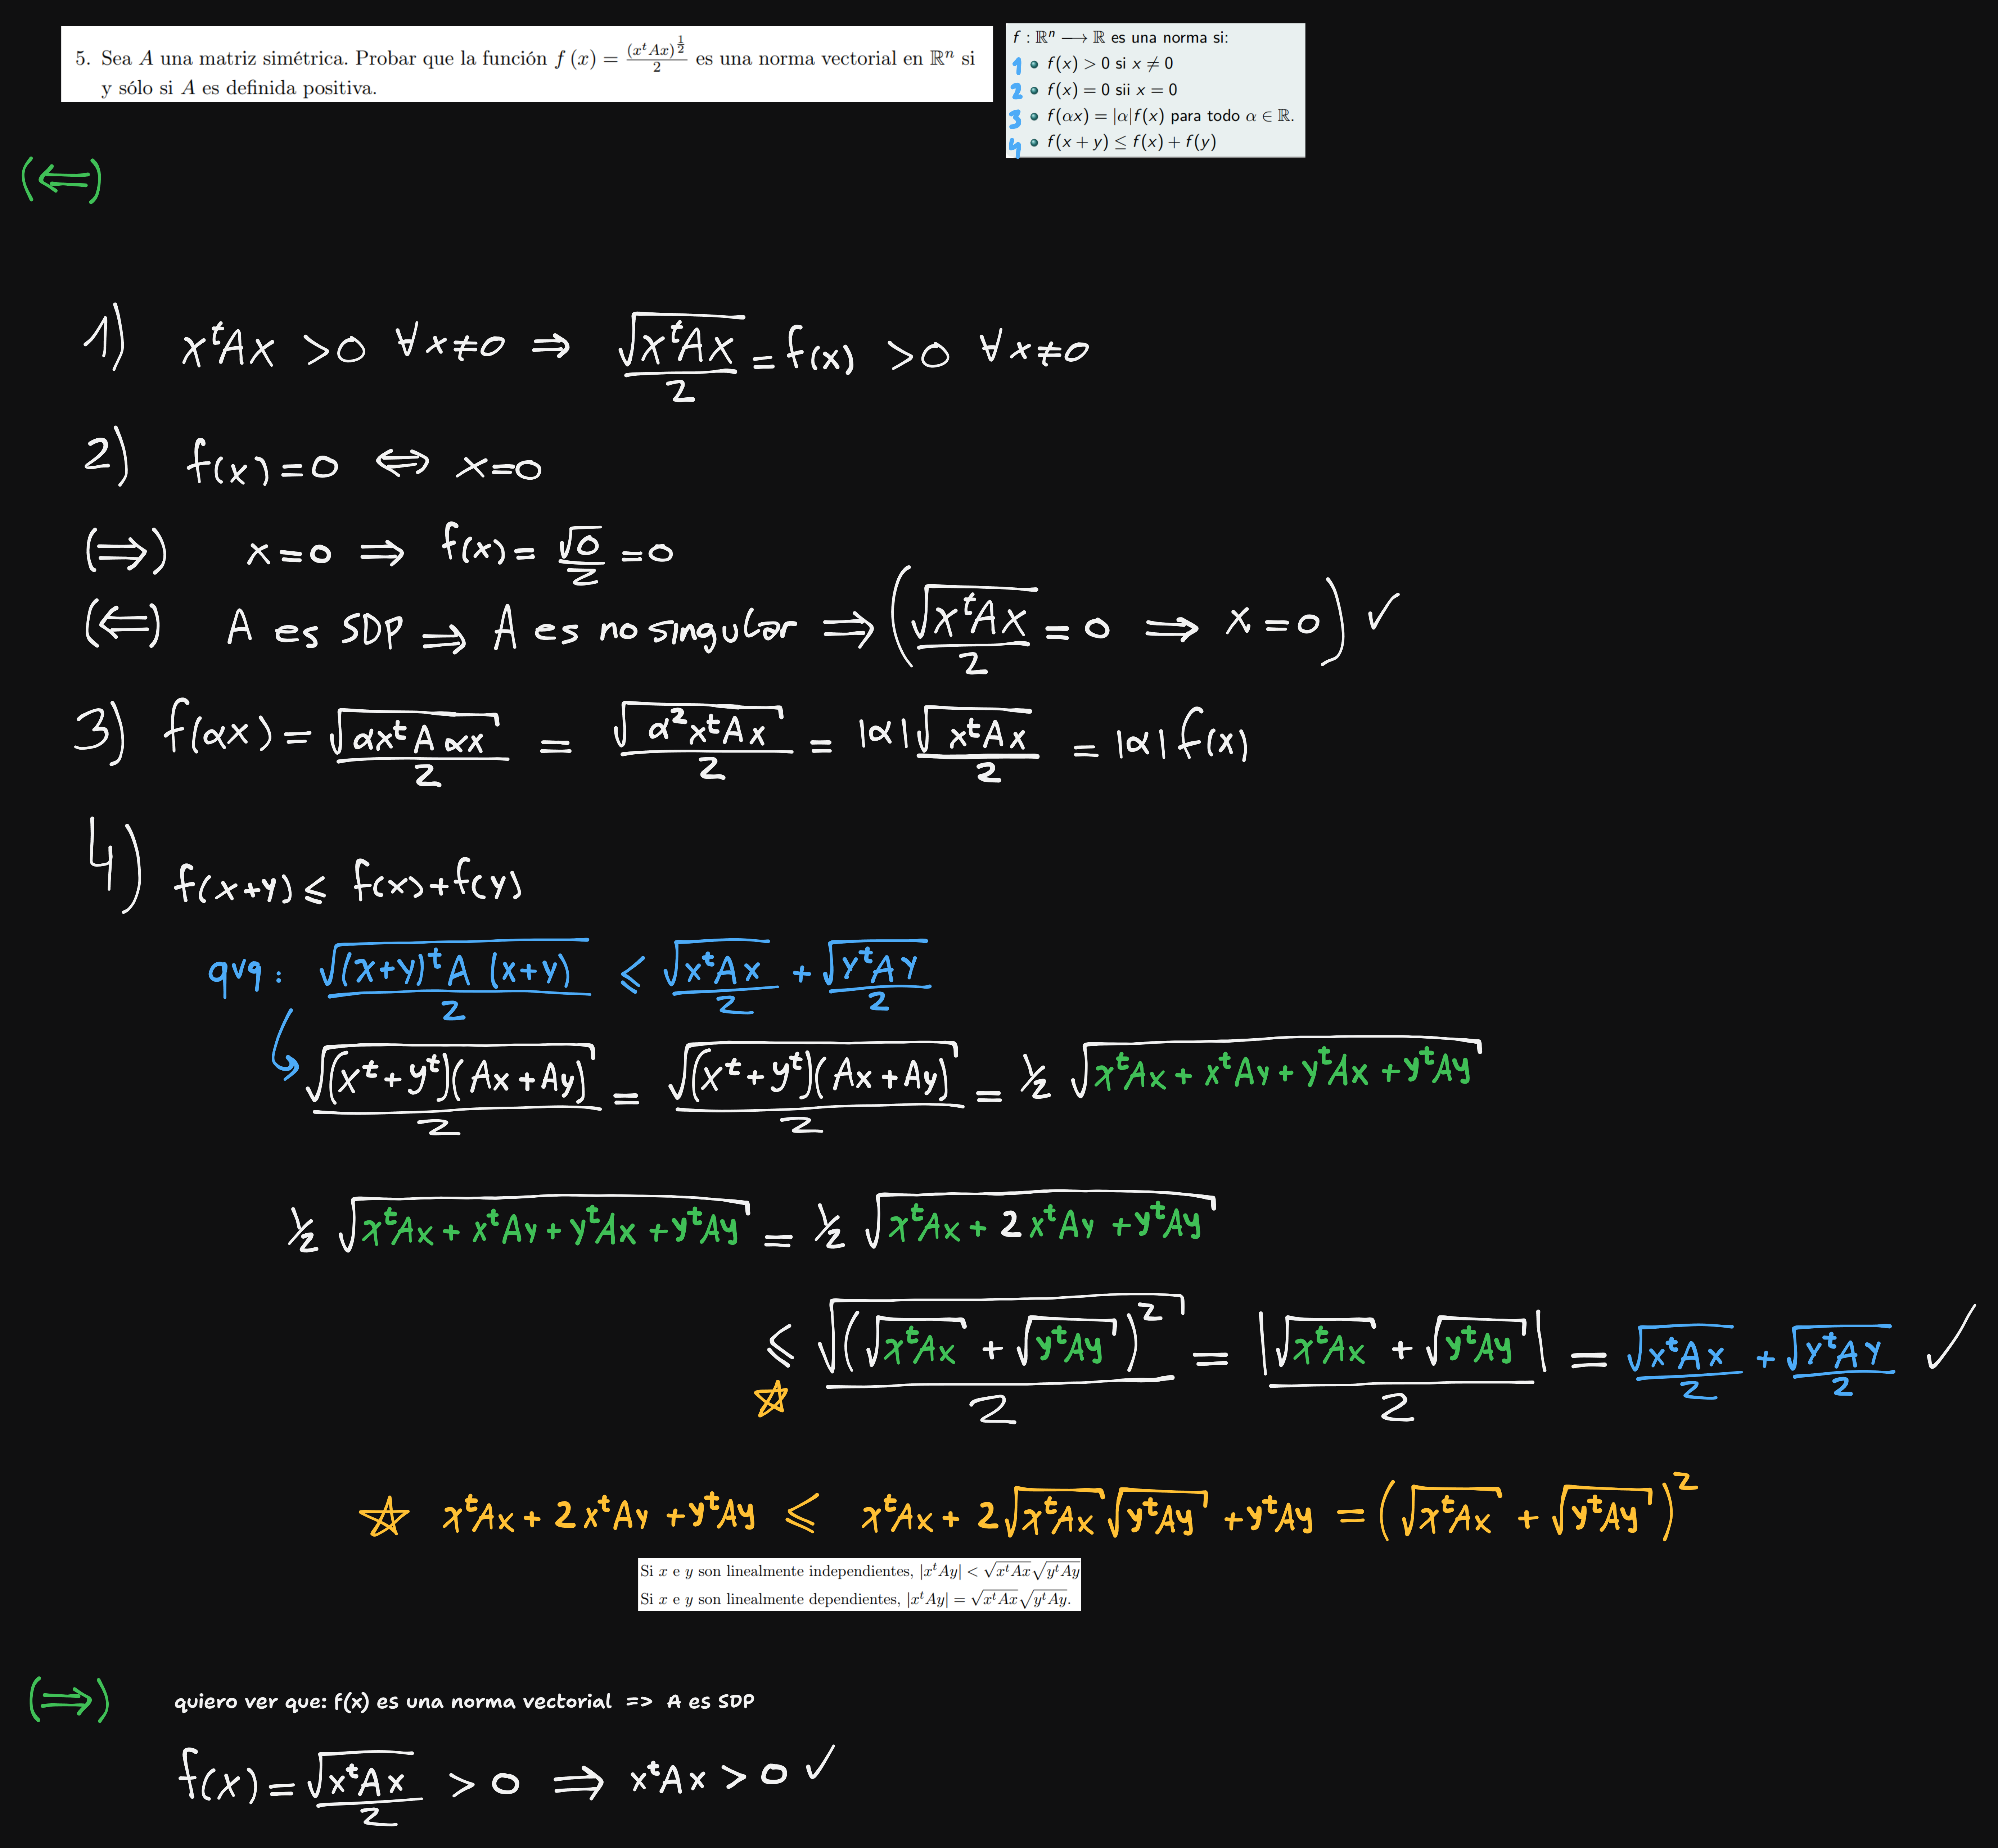 5. Sea A una matriz simétrica. Probar que la función f (x) = (x^t Ax)^{1/2} / 2 es una norma vectorial en ℝ^n si
y sólo si A es definida positiva.
f : ℝ^n ⟶ ℝ es una norma si:
1 • f(x) > 0 si x ≠ 0
2 • f(x) = 0 sii x = 0
3 • f(αx) = |α|f(x) para todo α ∈ ℝ.
4 • f(x + y) ≤ f(x) + f(y)
(⟸)
1) x^t Ax > 0 ∀x≠0 ⇒ √(x^t Ax)/2 = f(x) > 0 ∀x≠0
2) f(x) = 0 ⟺ x=0
(⟹) x=0 ⟹ f(x) = √0/2 = 0
(⟸) A es SDP ⟹ A es no singular ⟹ (√(x^t Ax)/2 = 0 ⟹ x=0) ✓
3) f(αx) = √(αx^t A αx)/2 = √(α² x^t Ax)/2 = |α| √(x^t Ax)/2 = |α| f(x)
4) f(x+y) ≤ f(x)+f(y)
qvq: √((x+y)^t A (x+y))/2 ≤ √(x^t Ax)/2 + √(y^t Ay)/2
√((x^t + y^t)(Ax + Ay))/2 = √((x^t + y^t)(Ax + Ay))/2 = ½ √(x^t Ax + x^t Ay + y^t Ax + y^t Ay)
½ √(x^t Ax + x^t Ay + y^t Ax + y^t Ay) = ½ √(x^t Ax + 2 x^t Ay + y^t Ay)
≤ √((√(x^t Ax) + √(y^t Ay))²)/2 = |√(x^t Ax) + √(y^t Ay)|/2 = √(x^t Ax)/2 + √(y^t Ay)/2 ✓
☆
☆ x^t Ax + 2 x^t Ay + y^t Ay ≤ x^t Ax + 2√(x^t Ax)√(y^t Ay) + y^t Ay = (√(x^t Ax) + √(y^t Ay))²
Si x e y son linealmente independientes, |x^t Ay| < √(x^t Ax)√(y^t Ay)
Si x e y son linealmente dependientes, |x^t Ay| = √(x^t Ax)√(y^t Ay).
(⟹) quiero ver que: f(x) es una norma vectorial => A es SDP
f(x) = √(x^t Ax)/2 > 0 ⟹ x^t Ax > 0 ✓